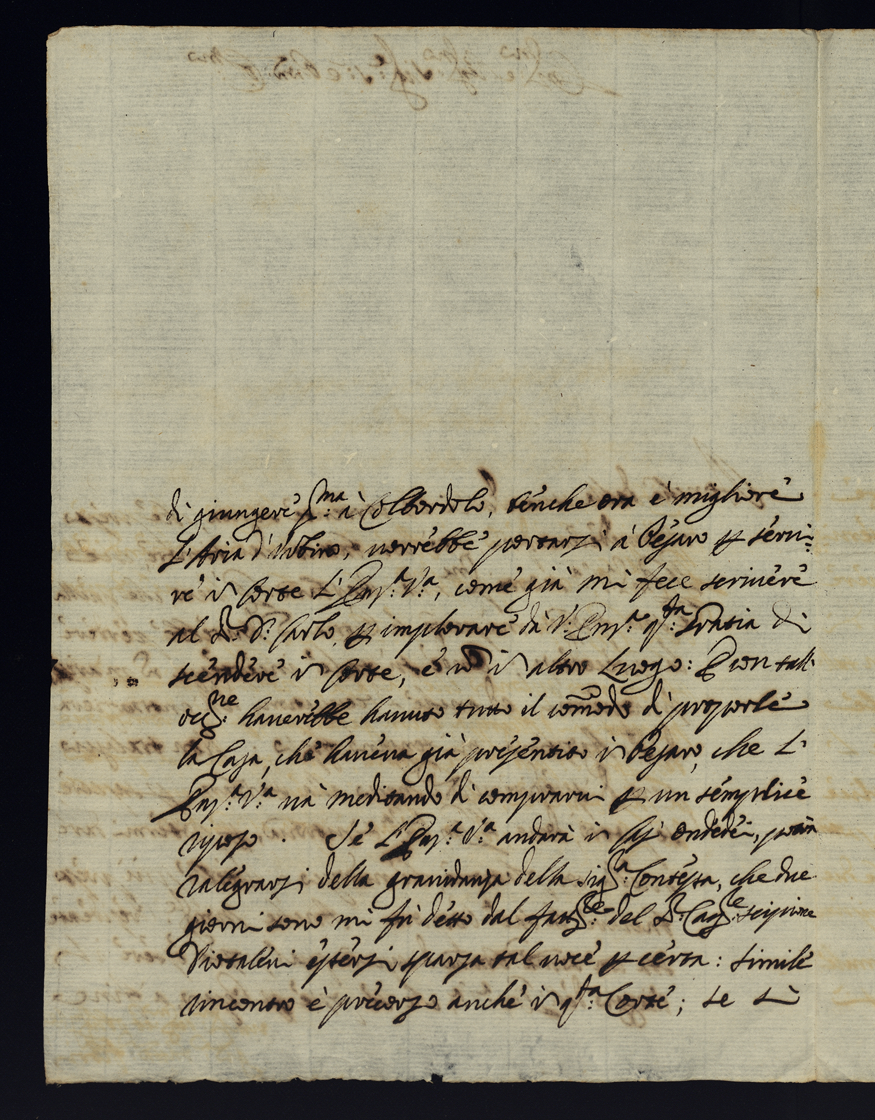 di giungere p.ma à Colbordolo, benche ora è migliore
l'Aria d'Urbino, verrebbe portarsi à Pesaro p servi-
re in Corte L'Em.a V.a, come già mi fece scrivere
al S.r D. Carlo, p implorare da V. Em.a q.sta Gratia di
scendere in Corte, è nò in altro Luogo: In tal
occ.ne haverebbe havuto tutto il comodo di proporle
la Casa, che haveva già presentito in Pesaro, che L'
Em.a V.a và meditando di comprarvi p un semplice
riposo. Se L'Em.a V.a andarà in
ralegrarsi della gravidanza della Sig.ra Contessa, che due
giorni sono mi fù detto dal del S.r Scipione
essersi sparsa tal voce p certa: Simile
rincontro è precorso anche in q.sta Corte; se